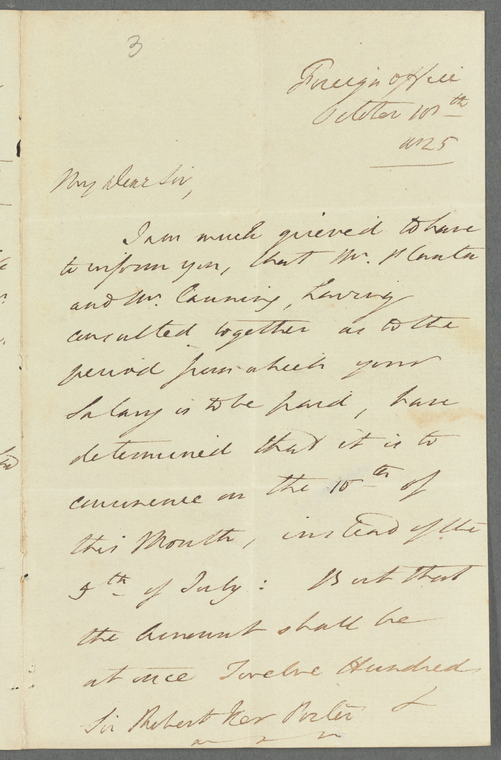 3
Foreign Office
October 10th
1825
My Dear Sir,
I am much grieved to have
to inform you, that Mr. Planta
and Mr. Canning, having
consulted together as to the
period from which your
Salary is to be paid, have
determined that it is to
commence on the 10th of
this Month, instead of the
5th of July: But that
the Amount shall be
at once Twelve Hundred
Sir Robert Ker Porter